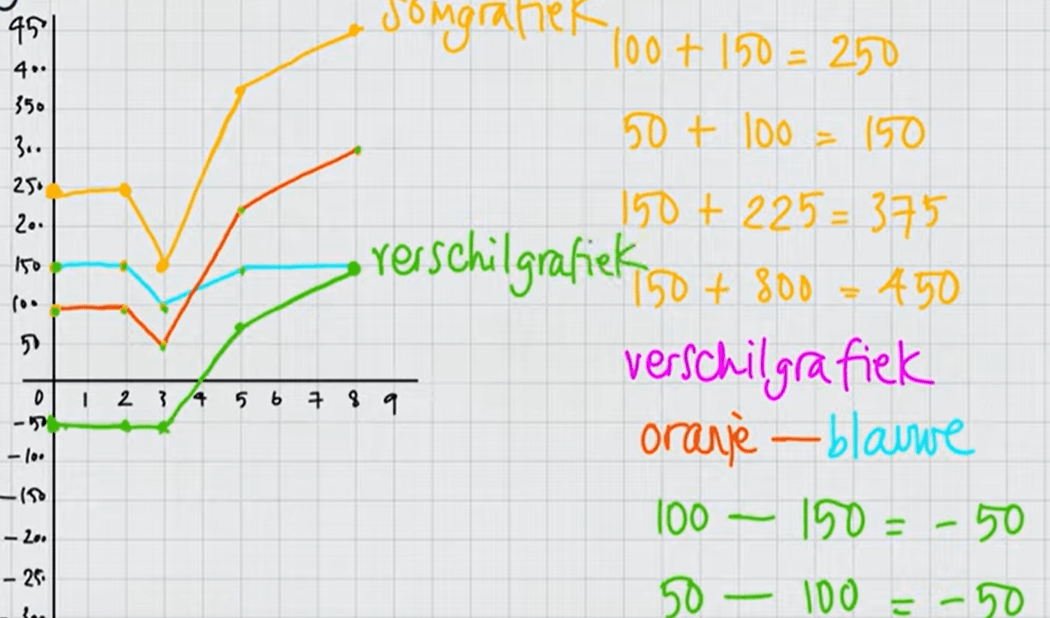 somgrafiek
450
400
350
300
250
200
150
100
50
0 1 2 3 4 5 6 7 8 9
-50
-100
-150
-200
-25
verschilgrafiek
100 + 150 = 250
50 + 100 = 150
150 + 225 = 375
150 + 800 = 450
verschilgrafiek
oranje — blauwe
100 — 150 = -50
50 — 100 = -50